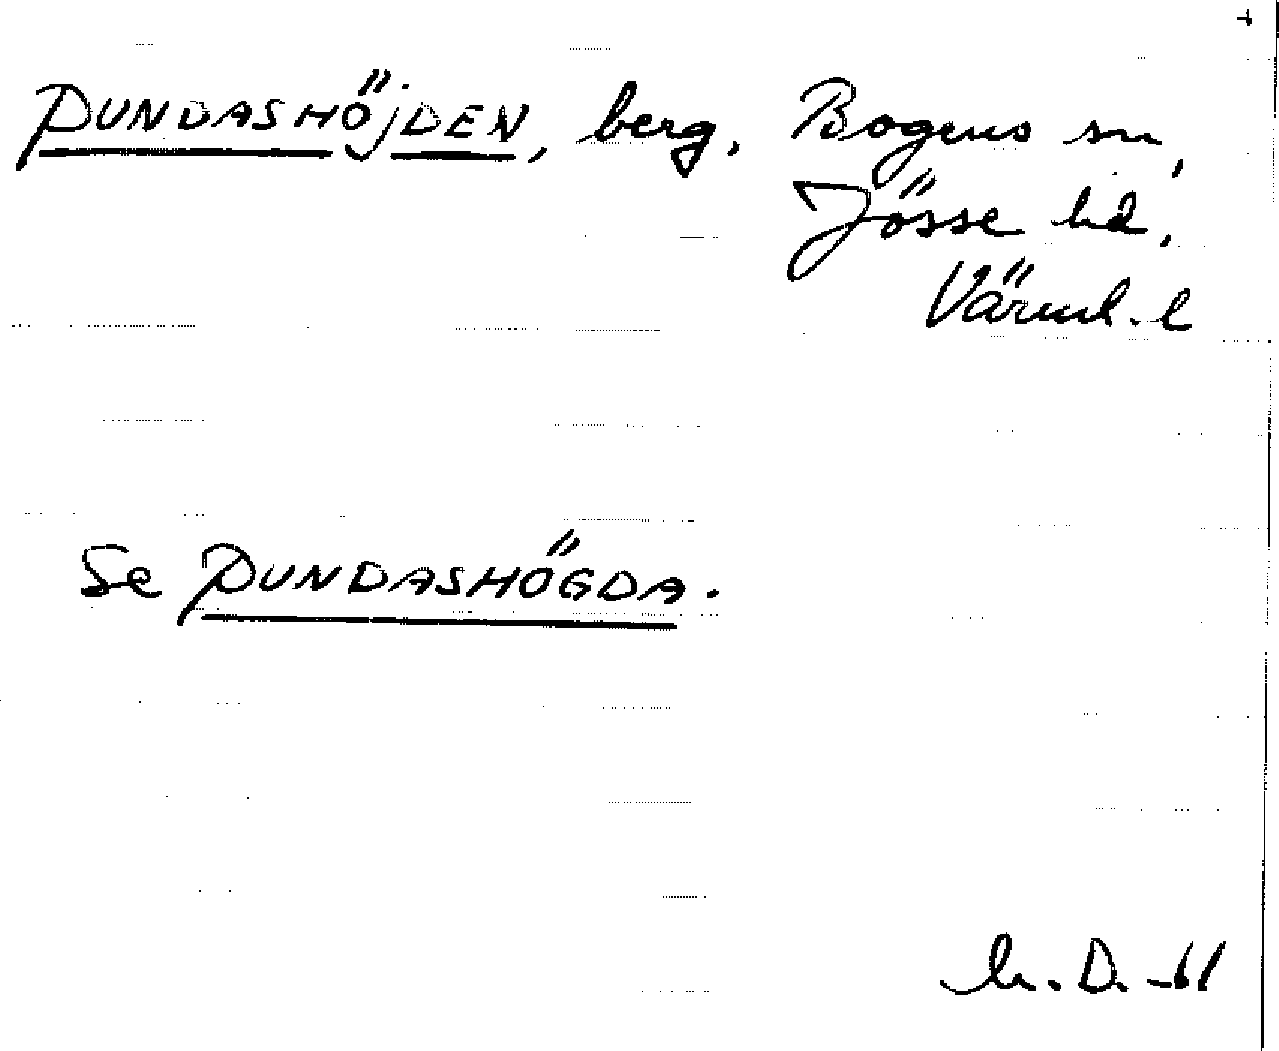 PUNDASHÖJDEN, berg, Bogens sn,
Jösse hd,
Värml. l
Se PUNDASHÖGDA.